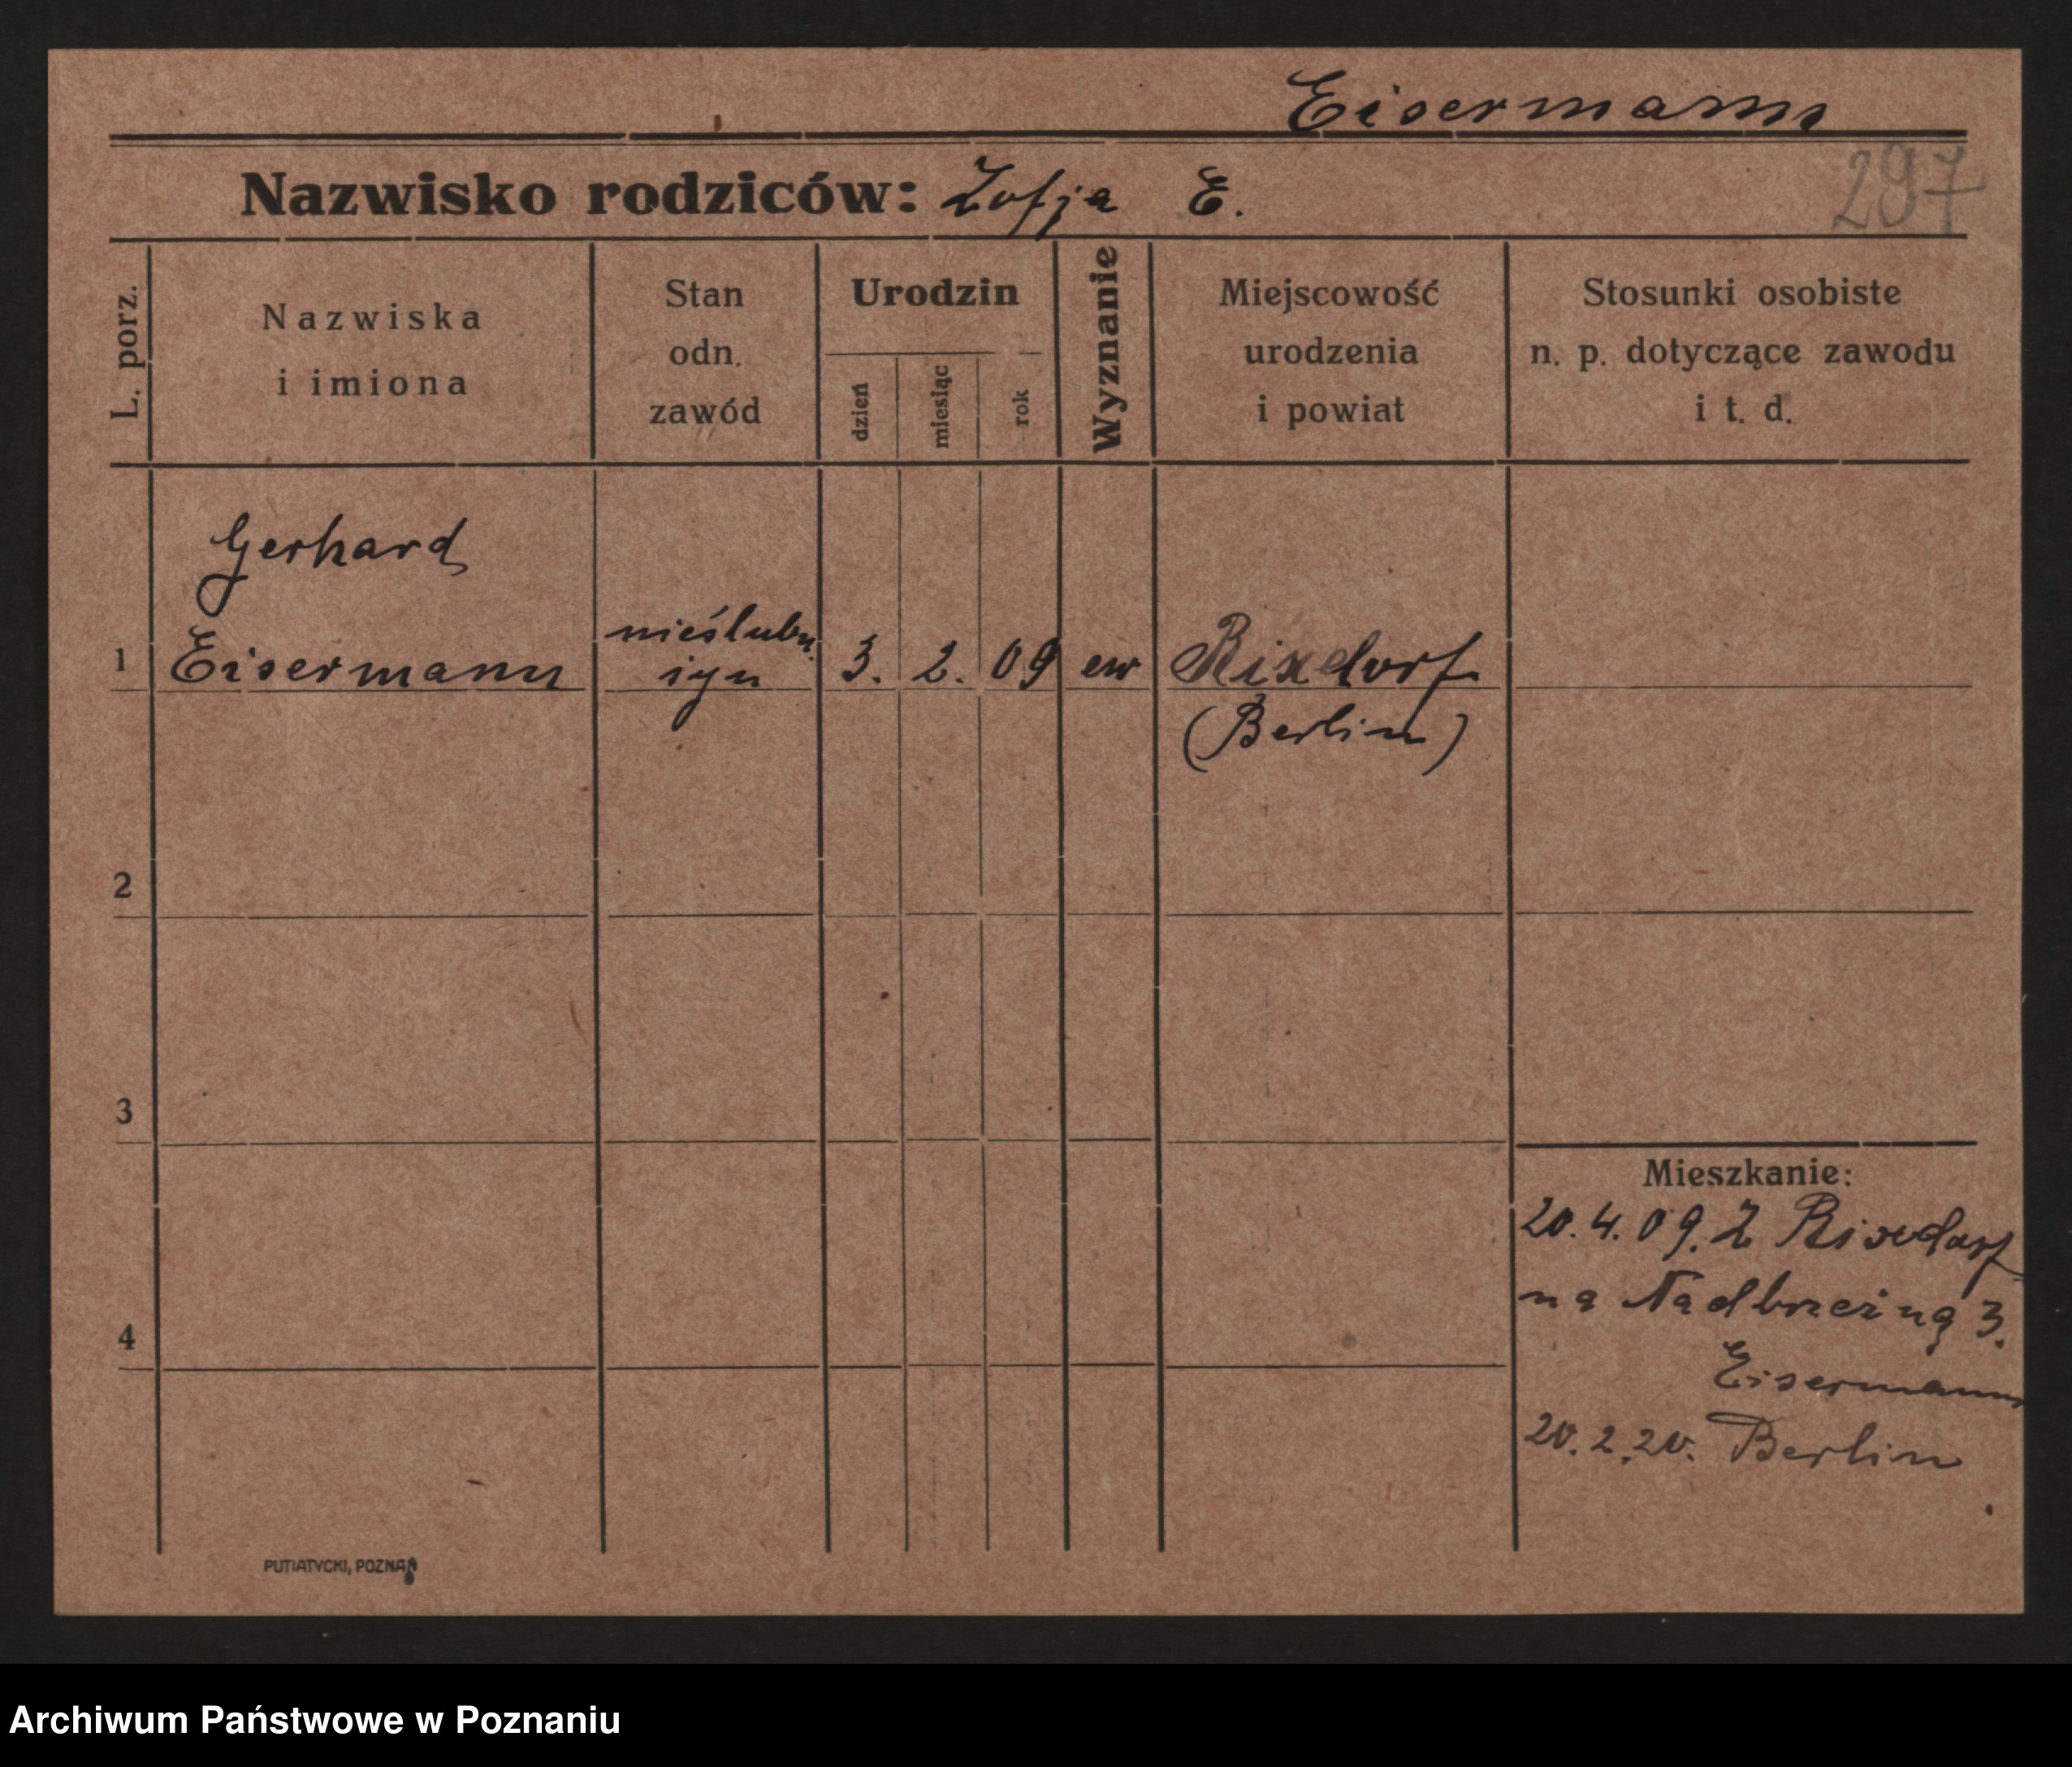 Eisermann
Nazwisko rodziców: Zofja E.
297
L. porz.
Nazwiska
i imiona
Stan
odn.
zawód
Urodzin
dzień
miesiąc
rok
Wyznanie
Miejscowość
urodzenia
i powiat
Stosunki osobiste
n. p. dotyczące zawodu
i t. d.
Gerhard
1 Eisermann nieślubn. syn 3. 2. 09 ew Rixdorf
(Berlin)
2
3
4
Mieszkanie:
20.4.09. Z Rixdorf
na Nadbrzeżną 3.
Eisermann
20.2.20. Berlin
PUTIATYCKI, POZNAŃ
Archiwum Państwowe w Poznaniu